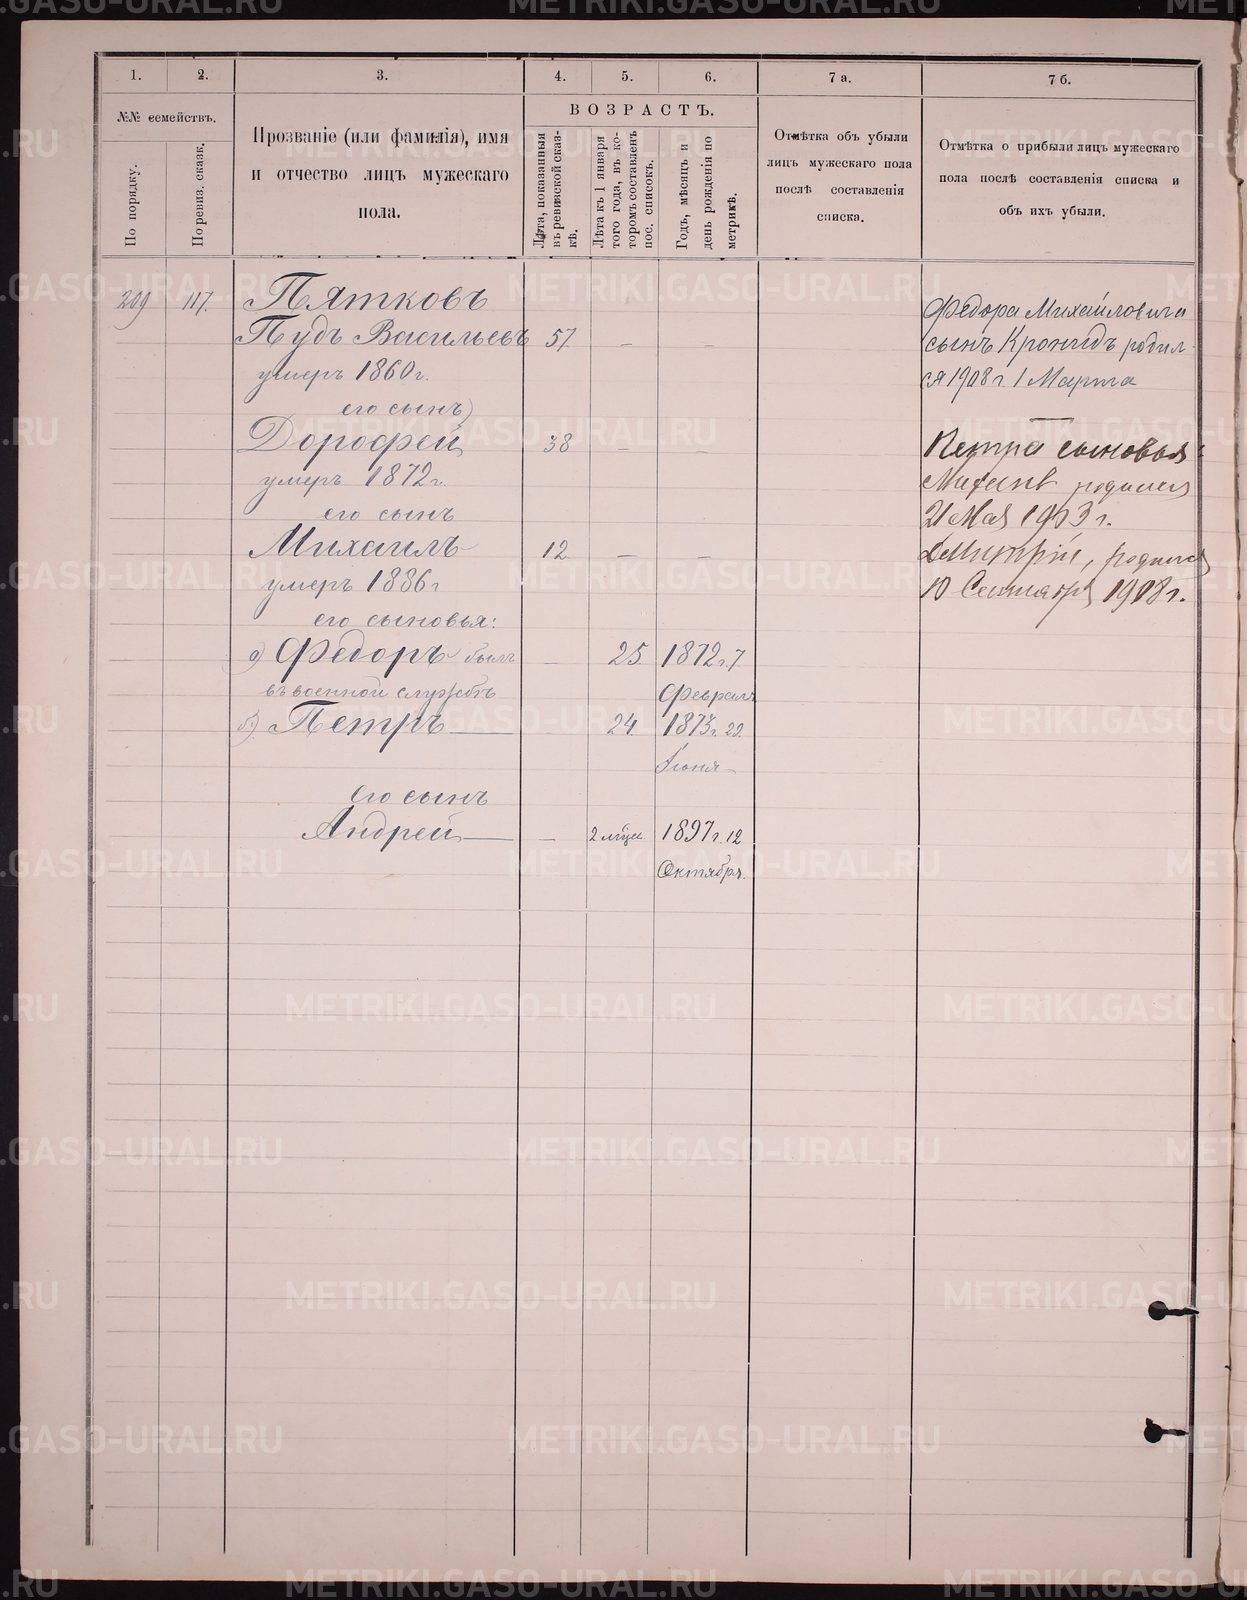 1.
2.
3.
4.
5.
6.
7 а.
7 б.
№№ семействъ.
По порядку.
По ревиз. сказк.
Прозваніе (или фамилія), имя
и отчество лицъ мужескаго
пола.
ВОЗРАСТЪ.
Лѣта, показанныя
въ ревизской сказ-
кѣ.
Лѣта къ 1 января
того года, въ ко-
торомъ составленъ
пос. списокъ.
Годъ, мѣсяцъ и
день рожденія по
метрикѣ.
Отмѣтка объ убыли
лицъ мужескаго пола
послѣ составленія
списка.
Отмѣтка о прибыли лицъ мужескаго
пола послѣ составленія списка и
объ ихъ убыли.
209 117. Пятковъ
Пудъ Васильевъ 57 — —
умеръ 1860 г.
его сынъ)
Дорофей 38 — —
умеръ 1872 г.
его сынъ
Михаилъ 12 — —
умеръ 1886 г
его сыновья:
а) Федоръ былъ — 25 1872 г. 7
въ военной службѣ Февраля
б) Петръ — — 24 1873 г. 29
Іюня
Его сынъ
Андрей — — 2 мѣца 1897 г. 12
Октября.
Федора Михайловича
сынъ Кронидъ родил-
ся 1908 г 1 Марта
Петра сыновья:
родился
21 Мая 1903 г.
Дмитрій, родился
10 Сентября 1908 г.
METRIKI.GASO-URAL.RU